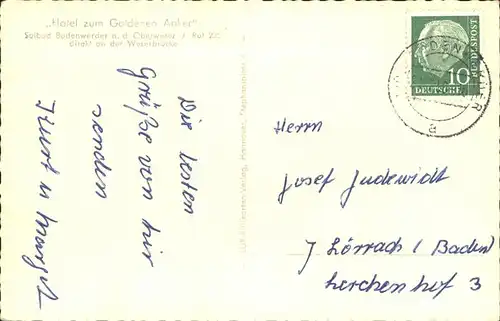 „Hotel zum Goldenen Anker"
Solbad Bodenwerder a. d. Oberweser / Ruf
direkt an der Weserbrücke
Die besten
Grüße von hir
senden
Kurt u Margit
DEUTSCHE
BUNDESPOST
10
Herrn
Josef Judewidt
7 Lörrach / Baden
Lerchenhof 3